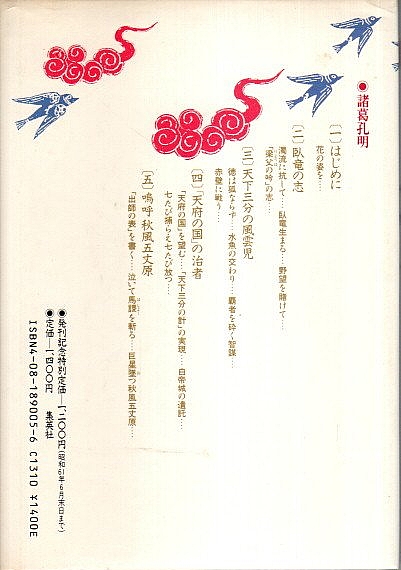 ●諸葛孔明
〔一〕はじめに
花の姿を……
〔二〕臥竜の志
濁流に抗して……臥竜生まる……野望を賭けて……
「梁父の吟」の志……
〔三〕天下三分の風雲児
徳は孤ならず……水魚の交わり……覇者を砕く智謀……
赤壁に戦う……
〔四〕「天府の国」の治者
「天府の国」を望む……「天下三分の計」の実現……白帝城の遺託……
七たび捕らえ七たび放つ……
〔五〕嗚呼 秋風五丈原
「出師の表」を書く……泣いて馬謖を斬る……巨星墜つ秋風五丈原……
●発刊記念特別定価—一、二〇〇円(昭和61年6月末日まで)
●定価—一、四〇〇円 集英社
ISBN4-08-189005-6 C1310 ¥1400E